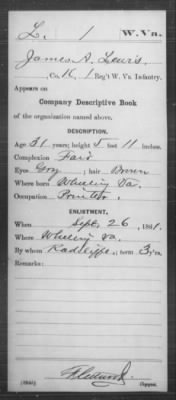 L. 1 W. Va.
James A. Lewis
Co. K, 1 Reg't W. Va. Infantry.
Appears on
Company Descriptive Book
of the organization named above.
DESCRIPTION.
Age 31 years; height 5 feet 11 inches.
Complexion Fair
Eyes Gray; hair Brown
Where born Wheeling Va.
Occupation Printer.
ENLISTMENT.
When Sept. 26, 1861.
Where Wheeling Va.
By whom Radcliffe; term 3 y'rs.
Remarks:
Copyist.